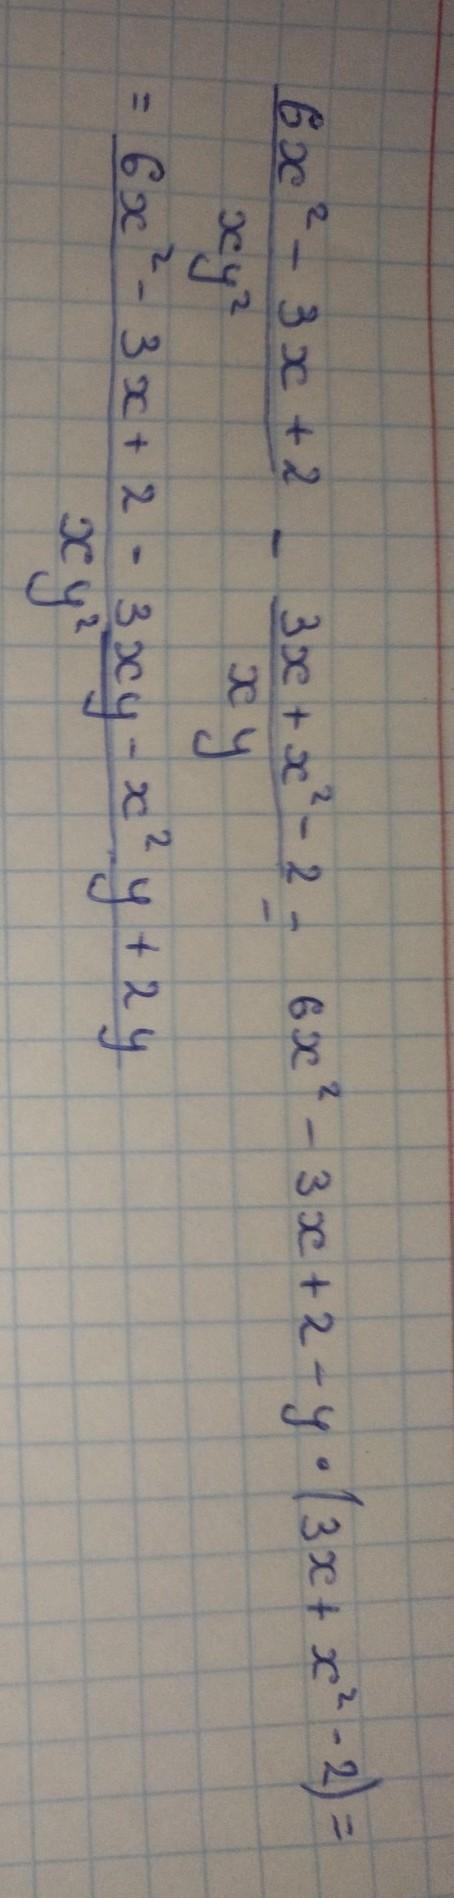 6x² - 3x + 2 - 3x + x² - 2 - 6x² - 3x + 2 - y · (3x + x² - 2) =
xy² xy =
= 6x² - 3x + 2 - 3xy - x²y + 2y
xy²